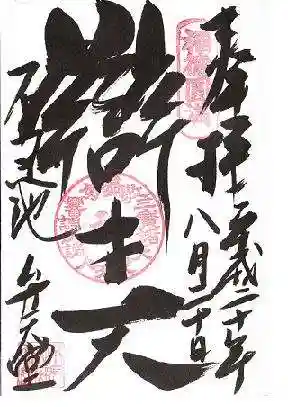 奉拝 平成二十年
八月二十日
辯才天
不忍池 弁天堂